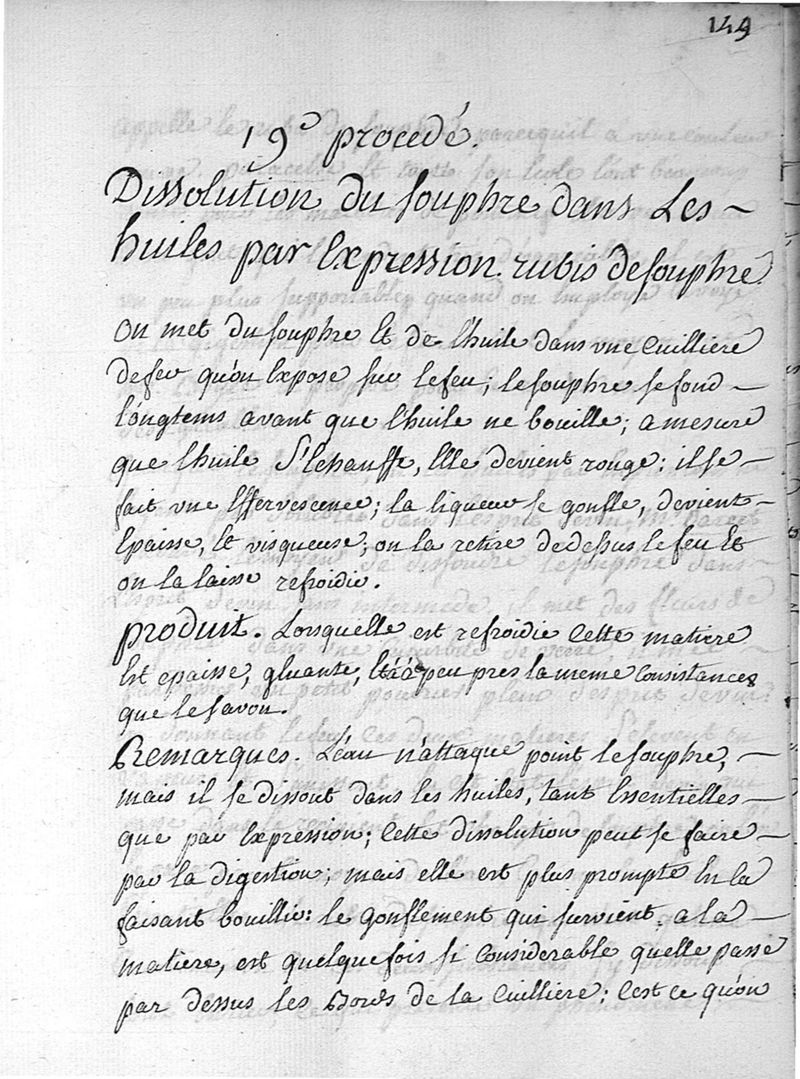 149
19e procedé.
Dissolution du souphre dans Les
huiles par Expression. rubis de souphre
on met du souphre Et de L'huile dans une Cuilliere
de fer qu'on Expose sur le feu; le souphre se fond
longtems avant que L'huile ne bouille; a mesure
que L'huile S'Echauffe, Elle devient rouge: il se
fait une Effervescence; la liqueur se gonfle, devient
Epaisse, Et visqueuse; on la retire de dessus le feu Et
on la laisse refroidir.
produit. Lorsquelle est refroidie Cette matiere
Est epaisse, gluante, Et a peu pres la meme Consistance
que le savon.
Remarques. L'eau n'attaque point le souphre,
mais il se dissout dans les huiles, tant Essentielles
que par Expression; Cette dissolution peut se faire
par la digestion; mais elle est plus prompte En la
faisant bouillir: le gonflement qui survient a la
matiere, est quelquefois si Considerable quelle passe
par dessus les Bords de la Cuilliere; C'est ce qu'on